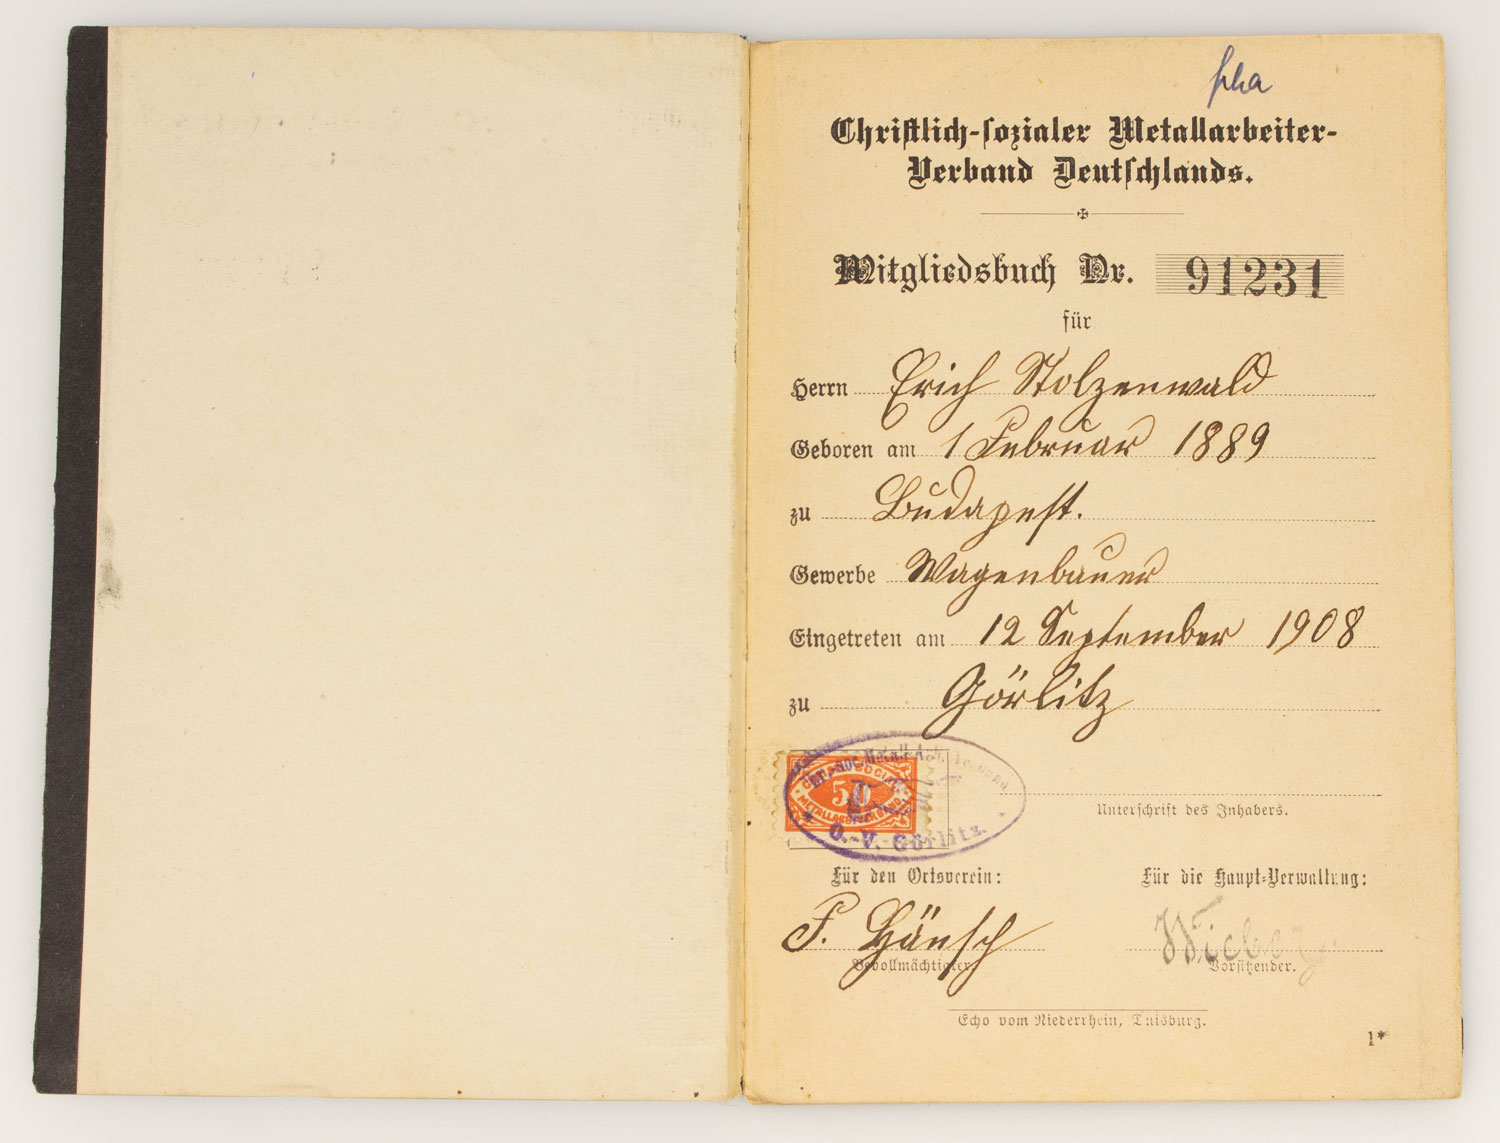 Christlich-sozialer Metallarbeiter-
Verband Deutschlands.
Mitgliedsbuch Nr. 91231
für
Herrn Erich Stolzenwald
Geboren am 1 Februar 1889
zu Budapest.
Gewerbe Wagenbauer
Eingetreten am 12 September 1908
zu Görlitz
50
O.-V. Görlitz.
Unterschrift des Inhabers.
Für den Ortsverein: Für die Haupt-Verwaltung:
F. Hänsch
Bevollmächtigter. Vorsitzender.
Echo vom Niederrhein, Duisburg.
1*